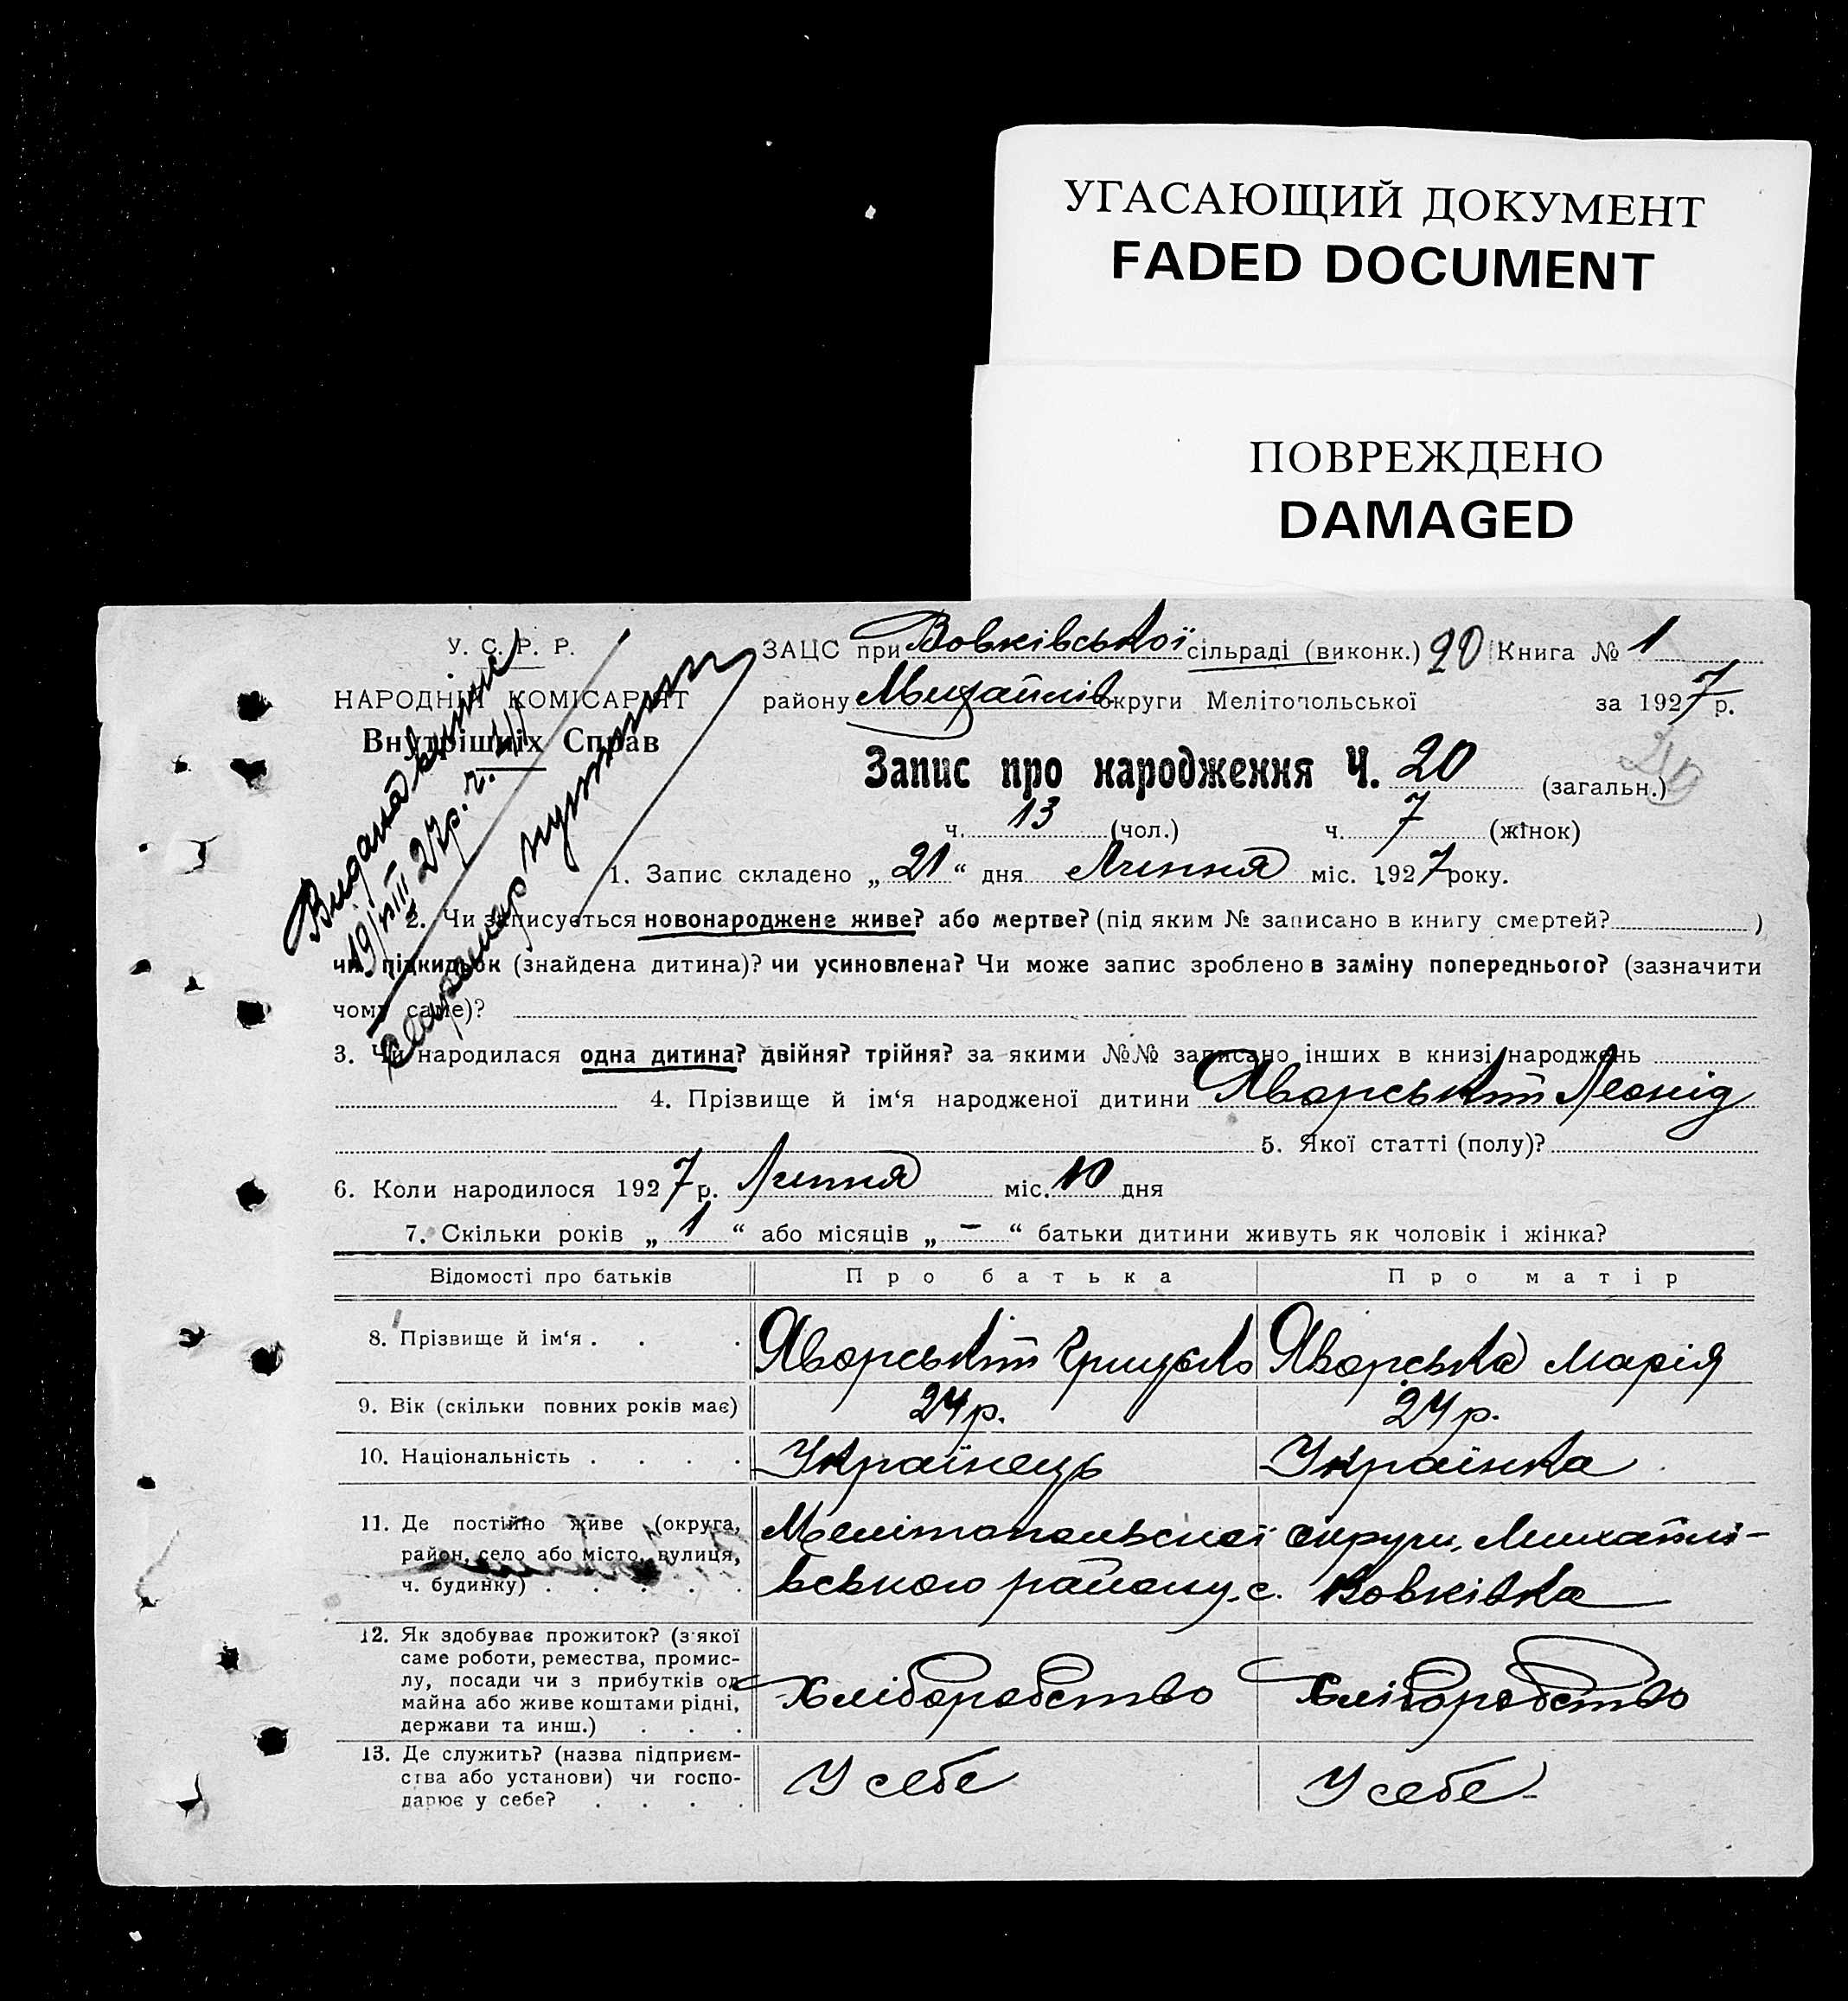 УГАСАЮЩИЙ ДОКУМЕНТ
FADED DOCUMENT
ПОВРЕЖДЕНО
DAMAGED
У. С. Р. Р.
НАРОДНІЙ КОМІСАРІЯТ
Внутрішніх Справ
ЗАЦС при Вовківської сільраді (виконк.) 20 Книга № 1
району Михайлів округи Мелітопольської за 1927 р.
Запис про народження Ч. 20 (загальн.)
ч. 13 (чол.) ч. 7 (жінок)
Видана
19/VIII 27р. ч.
1. Запис складено „ 21 “ дня Липня міс. 1927 року.
2. Чи записується новонароджене живе? або мертве? (під яким № записано в книгу смертей? )
чи підкидьок (знайдена дитина)? чи усиновлена? Чи може запис зроблено в заміну попереднього? (зазначити
чому саме)?
3. Чи народилася одна дитина? двійня? трійня? за якими №№ записано інших в книзі народжень
4. Прізвище й ім‘я народженої дитини Яворський Леонід
5. Якої статті (полу)?
6. Коли народилося 1927 р. Липня міс. 10 дня
7. Скільки років „ 1 “ або місяців „ – “ батьки дитини живуть як чоловік і жінка?
Відомості про батьків Про батька Про матір
8. Прізвище й ім‘я . . . Яворський Грицько Яворська Марія
9. Вік (скільки повних років має) 24 р. 24 р.
10. Національність . . . . Українець Українка
11. Де постійно живе (округа, Мелітопольської округи, Михайлі-
район, село або місто, вулиця,
ч. будинку) . . . . . вського району, с. Вовківка
12. Як здобуває прожиток? (з якої
саме роботи, ремества, промис-
лу, посади чи з прибутків од
майна або живе коштами рідні, Хліборобство Хліборобство
держави та инш.) . . .
13. Де служить? (назва підприєм-
ства або установи) чи госпо- У себе У себе
дарює у себе? . . . .